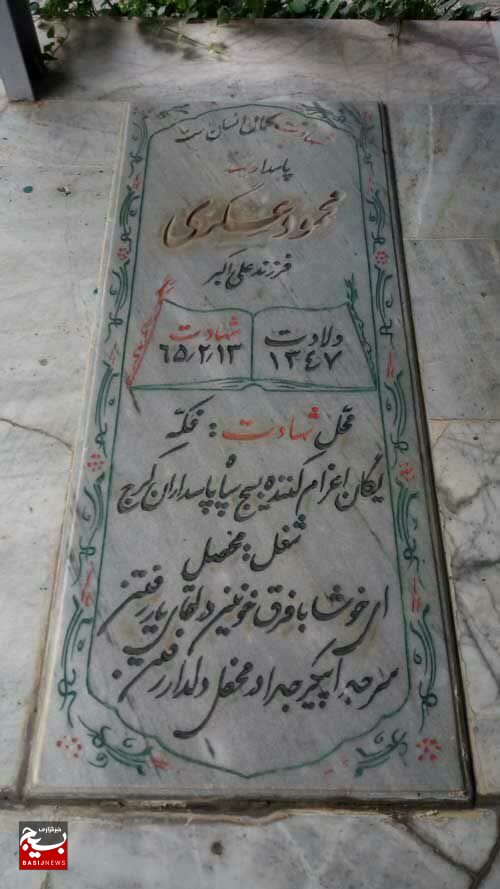 شهادت کمال انسان است
پاسدار
محمود عسکری
فرزند علی اکبر
ولادت ۱۳۴۷
شهادت ۶۵/۲/۱۳
محل شهادت : فکه
یگان اعزام کننده بسیج سپاه پاسداران کرج
شغل : محصل
ای خوشا با فرق خونین در لقای یار رفتن
سر جدا پیکر جدا در محفل دلدار رفتن
خبرگزاری
بسیج
BASIJNEWS